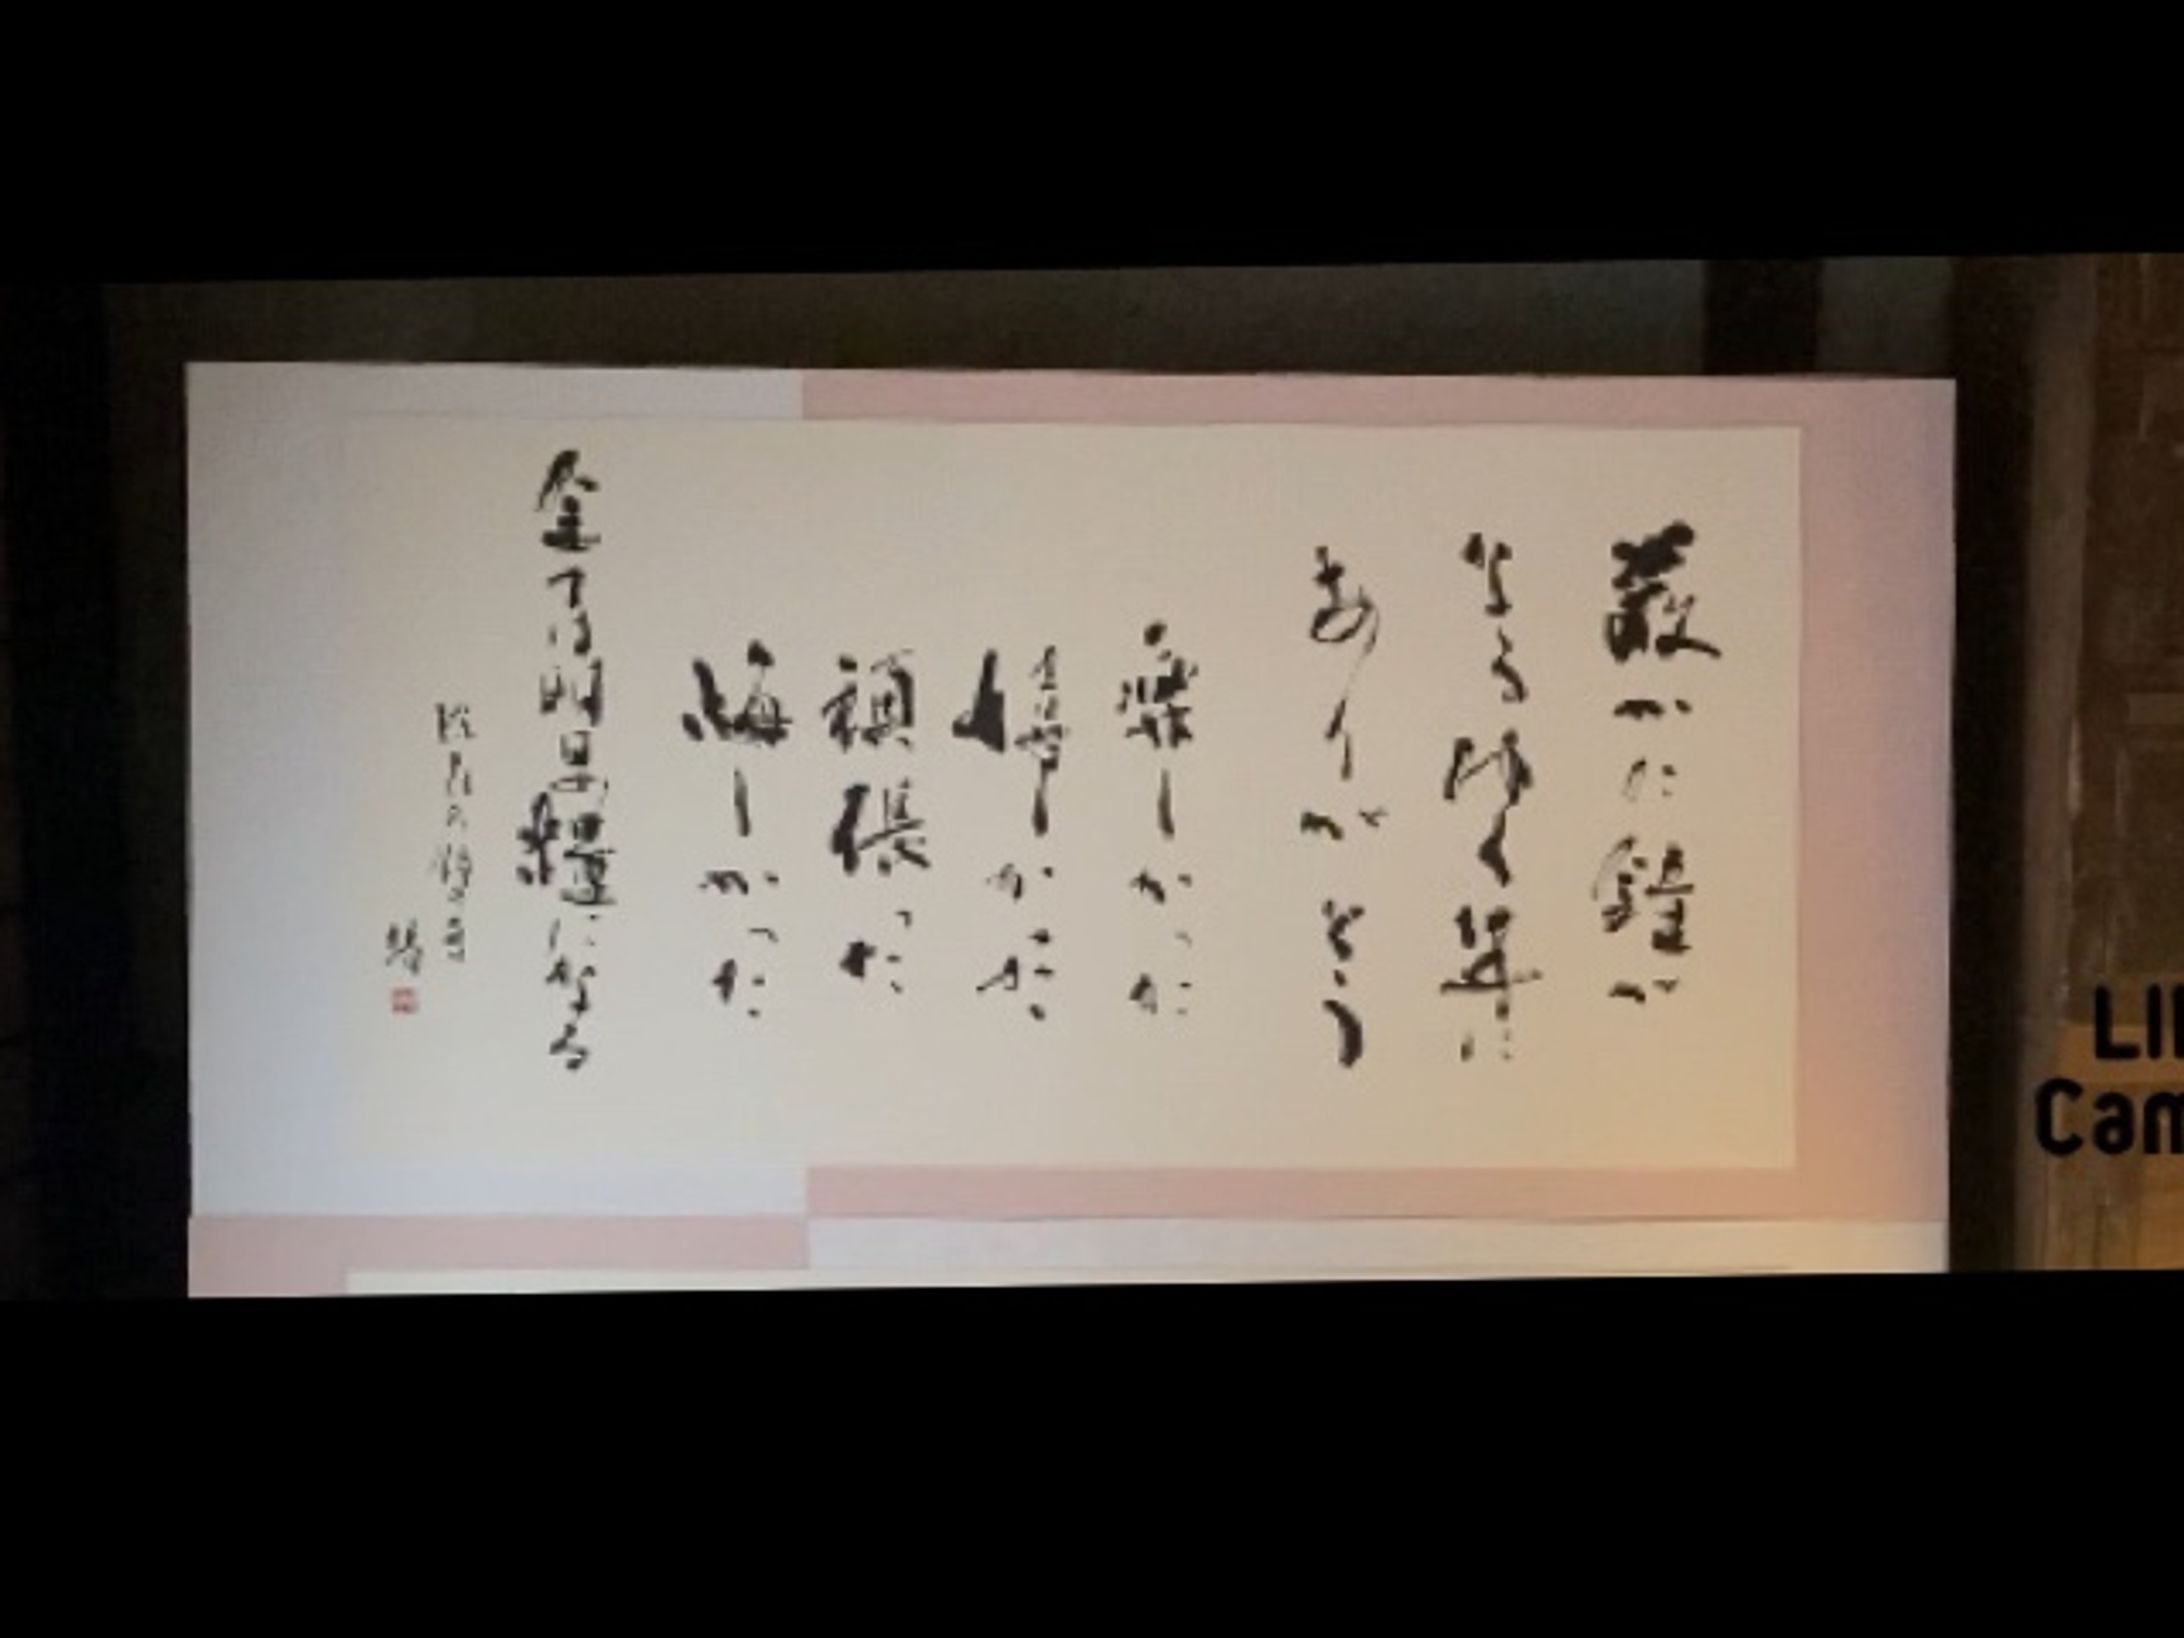 厳かに鐘が
なる 降る雪に
ありがとう
楽しかった
嬉しかった
頑張った
悔しかった
全ては明日の糧になる
LI
Cam